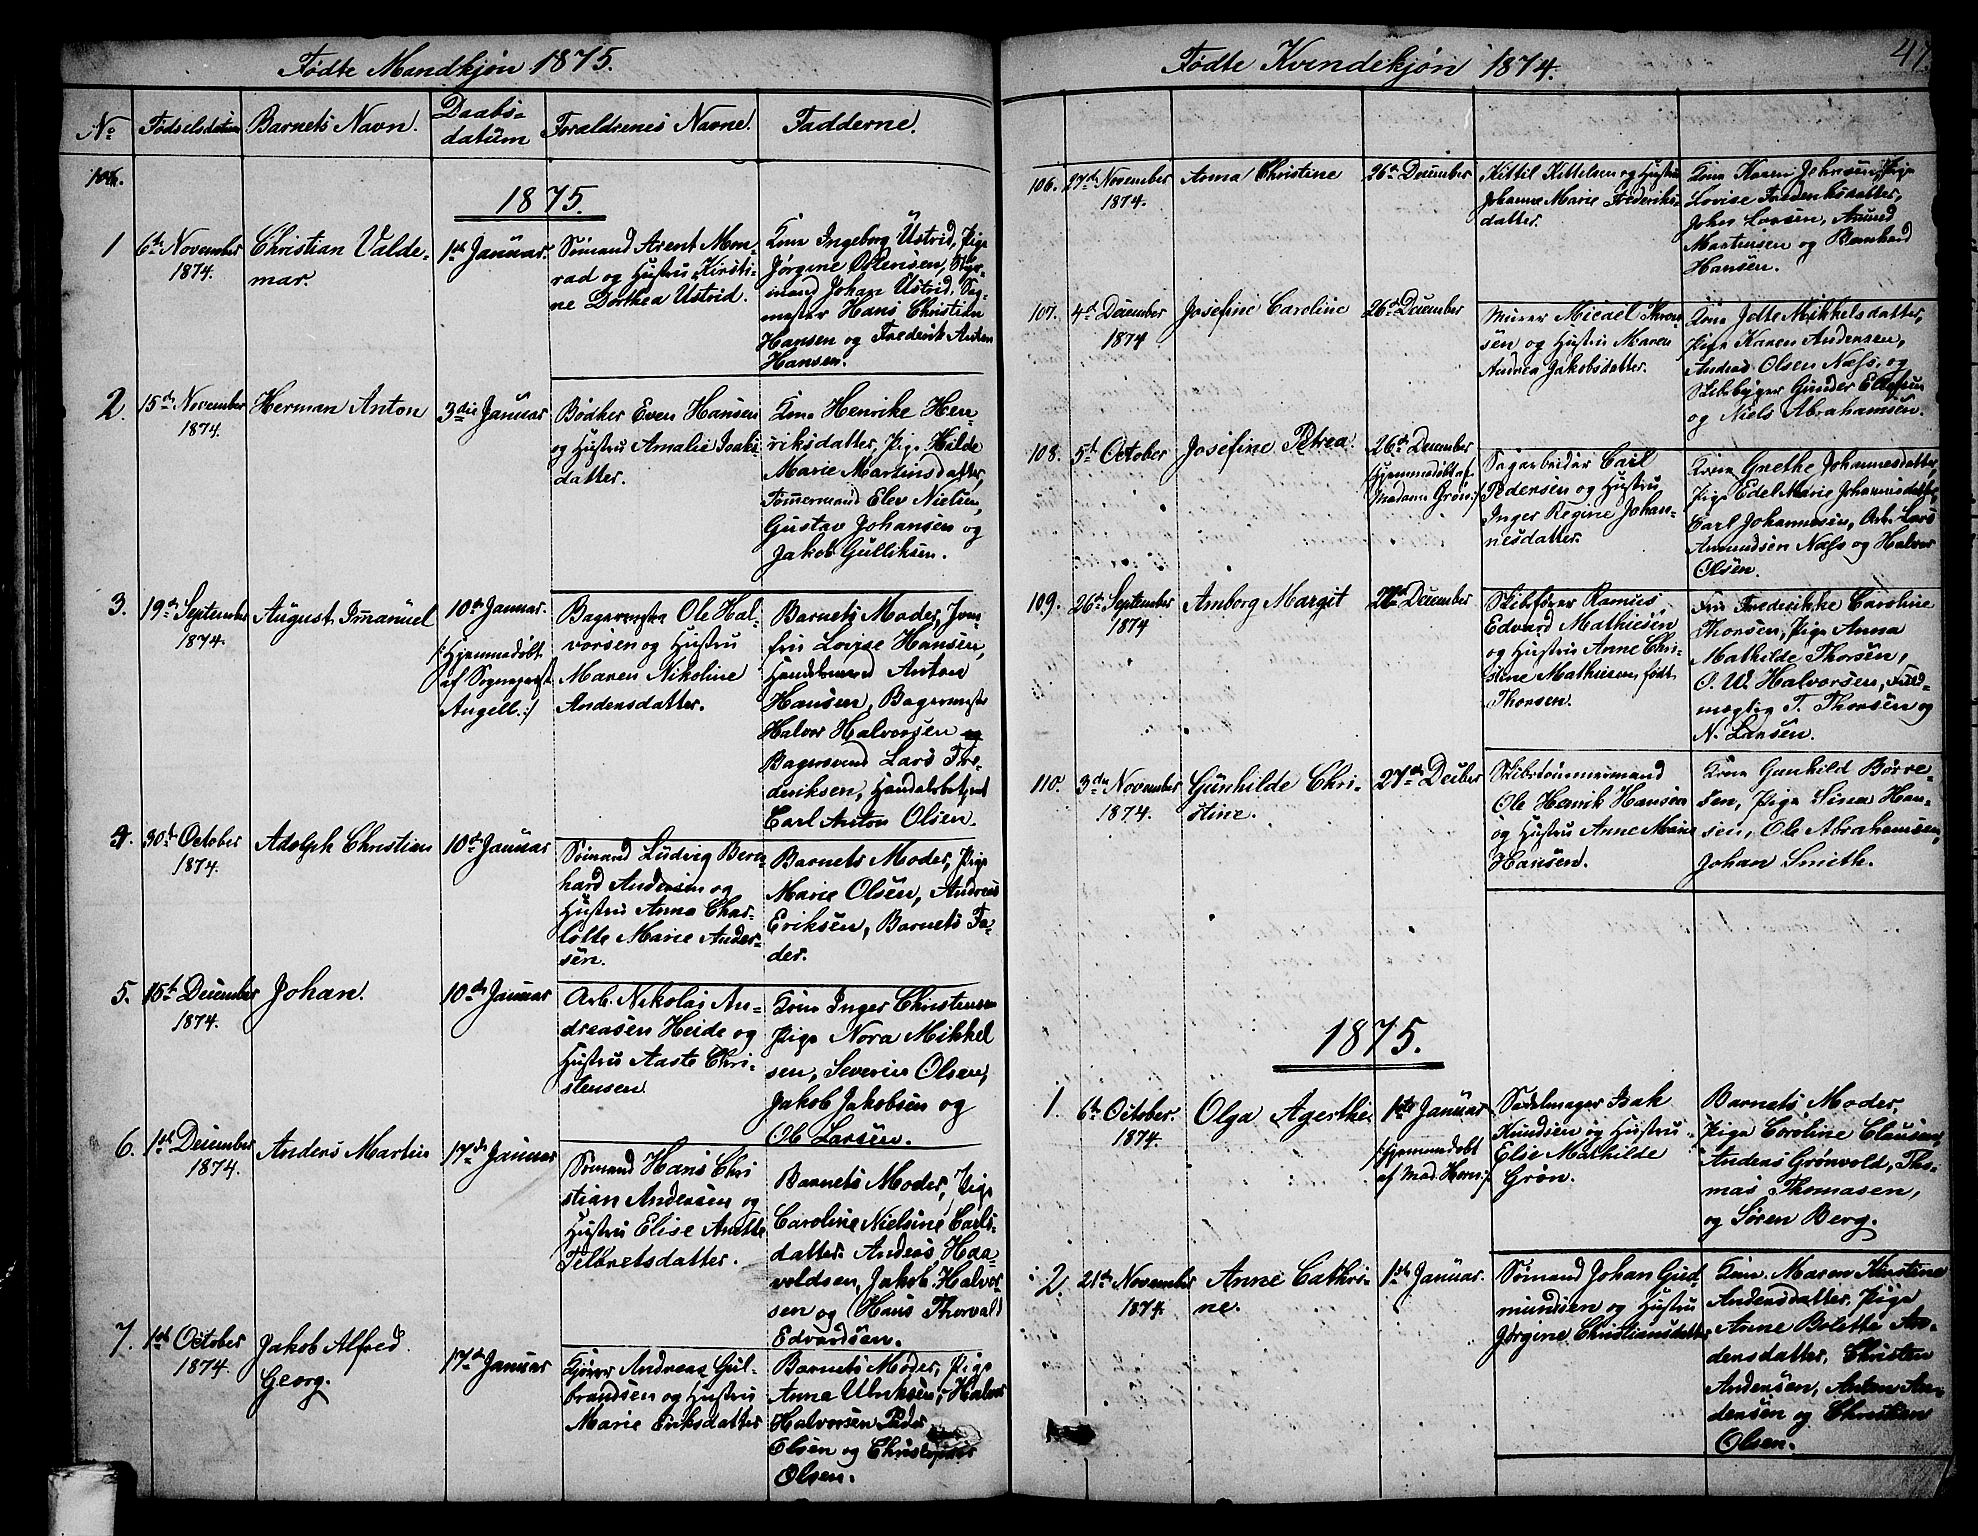 Fødte Mandkjøn 1875.
No
Fødselsdatum
Barnets Navn.
Daabs-
datum
Foraldrenes Navne.
Fadderne.
1875.
1
6te November
1874.
Christian Valde-
mar.
1ste Januar.
Sømand Arent Mon
rad og Hustru Kirsti-
ne Dorthea Ustrid.
Kone Ingeborg Ustrid, Pige
Jørgine Ostensen, Styr-
mand Johan Ustrid, Sag-
mester Hans Christian
Hansen og Frederik Anton
Hansen.
2
15de November
1874.
Herman Anton
3die Januar
Bødker Even Hansen
og Hustru Amalie Isaks
datter.
Kone Henrike Hen
riksdatter, Pige Hilde
Marie Martinsdatter,
Tømmermand Elev Nielsen,
Gustav Johansen og
Jakob Gulliksen.
3.
19de September
1874.
August Imanuel
10de Januar.
/: Hjemmedøbt
af Sogneprest
Angell. :/
Bagermester Ole Hal-
vorsen og Hustru
Maren Nikoline
Andersdatter.
Barnets Moder, Jom-
fru Lovise Hansen,
Handelsmand Anton
Hansen, Bagermester
Halvor Halvorsen
Bagersvend Lars Fre-
deriksen, Handelsbetjent
Carl Anton Olsen.
4.
30te October
1874.
Adolph Christian
10de Januar
Sømand Ludvig Bern
hard Andersen og
Hustru Anna Char-
lotte Marie Ander-
sen.
Barnets Moder, Pige
Marie Olsen, Andreas
Eriksen, Barnets Fa-
der.
5.
15de December
1874.
Johan.
10de Januar
Arb. Nikolai An-
dreasen Heide og
Hustru Aaste Chri-
stensen
Kone Inger Christensen
Pige Nora Mikkel
sen, Severin Olsen,
Jakob Jakobsen og
Ole Larsen.
6.
1ste December
1874.
Anders Martin
17de Januar
Sømand Hans Chri
stian Andersen og
Hustru Elise Anette
Telbretsdatter.
Barnets Moder, Pige
Caroline Nielsine Carls-
datter. Anders Haa-
voldsen, Jakob Halvor-
sen og Hans Thorvald
Edvardsen.
7.
1ste October
1874.
Jakob Alfred
Georg.
17de Januar
Kjører Andreas Gul-
brandsen og Hustru
Marie Eriksdatter
Barnets Moder, Pige
Anna Ulriksen, Halvor
Halvorsen Peder
Olsen og Christopher
Olsen.
Fødte Kvindekjøn 1874.
47.
106.
27de November
1874.
Anna Christine
26de December
Kittil Kittelsen og Hustru
Johanne Marie Frederiks-
datter.
Kone Karen Johnsen, Pige
Lovise Frederiksdatter,
John Larsen, Amund
Martinsen og Bernhard
Hansen.
107.
4de December
1874
Josefine Caroline
26de December
Murer Micael Thron
sen og Hustru Maren
Andrea Jakobsdatter.
Kone Jolte Mikkelsdatter,
Pige Karen Andersen,
Andreas Olsen Næss, og
Skibbyger Gunder Ellefsen
og Niels Abrahamsen.
108.
5te October
Josefine Petrea.
26de December
/Hjemmedøbt af
Madame Grøn:/
Sagarbeider Carl
Pedersen og Hustru
Inger Regine Johan-
nesdatter.
Kone Grethe Johannesdatter,
Pige Edel Marie Johannesdatter,
Carl Johannesen, Arb. Lars
Amundsen Næss og Halvor
Olsen.
109.
26de September
1874
Amborg Margit
December
Skibsfører Rasmus
Edvard Mathiesen
og Hustru Anne Chri-
stine Mathiesen, født
Thorsen.
Fru Frederikke Caroline
Thorsen, Pige Anna
Mathilde Thorsen,
O. W. Halvorsen, Fuld-
mægtig T. Thorsen og
N. Larsen.
110.
3die November
1874.
Gunhilde Chri-
stine.
27de Decber
Skibstømmermand
Ole Henrik Hansen
og Hustru Anne Marie
Hansen.
Kone Gunhild Børre-
sen, Pige Sina Han-
sen, Ole Abrahamsen,
Johan Smith.
1875.
1.
6te October.
1874.
Olga Agerthe
1ste Januar
/:Hjemmedøbt
af Mad. Horn:/
Sadelmager Isak
Knudsen og Hustru
Elise Mathilde
Grøn.
Barnets Moder,
Pige Caroline Clausen,
Anders Grønvold, Tho-
mas Thomasen,
og Søren Berg.
2.
21de November
1874.
Anne Cathri-
ne.
1ste Januar.
Sømand Johan Gud
mundsen og Hustru
Jørgine Christiansdatter
Kone Maren Kirstine
Andersdatter. Pige
Anne Bolette An-
dersdatter, Christen
Andersen, Anton An-
dersen og Christian
Olsen.